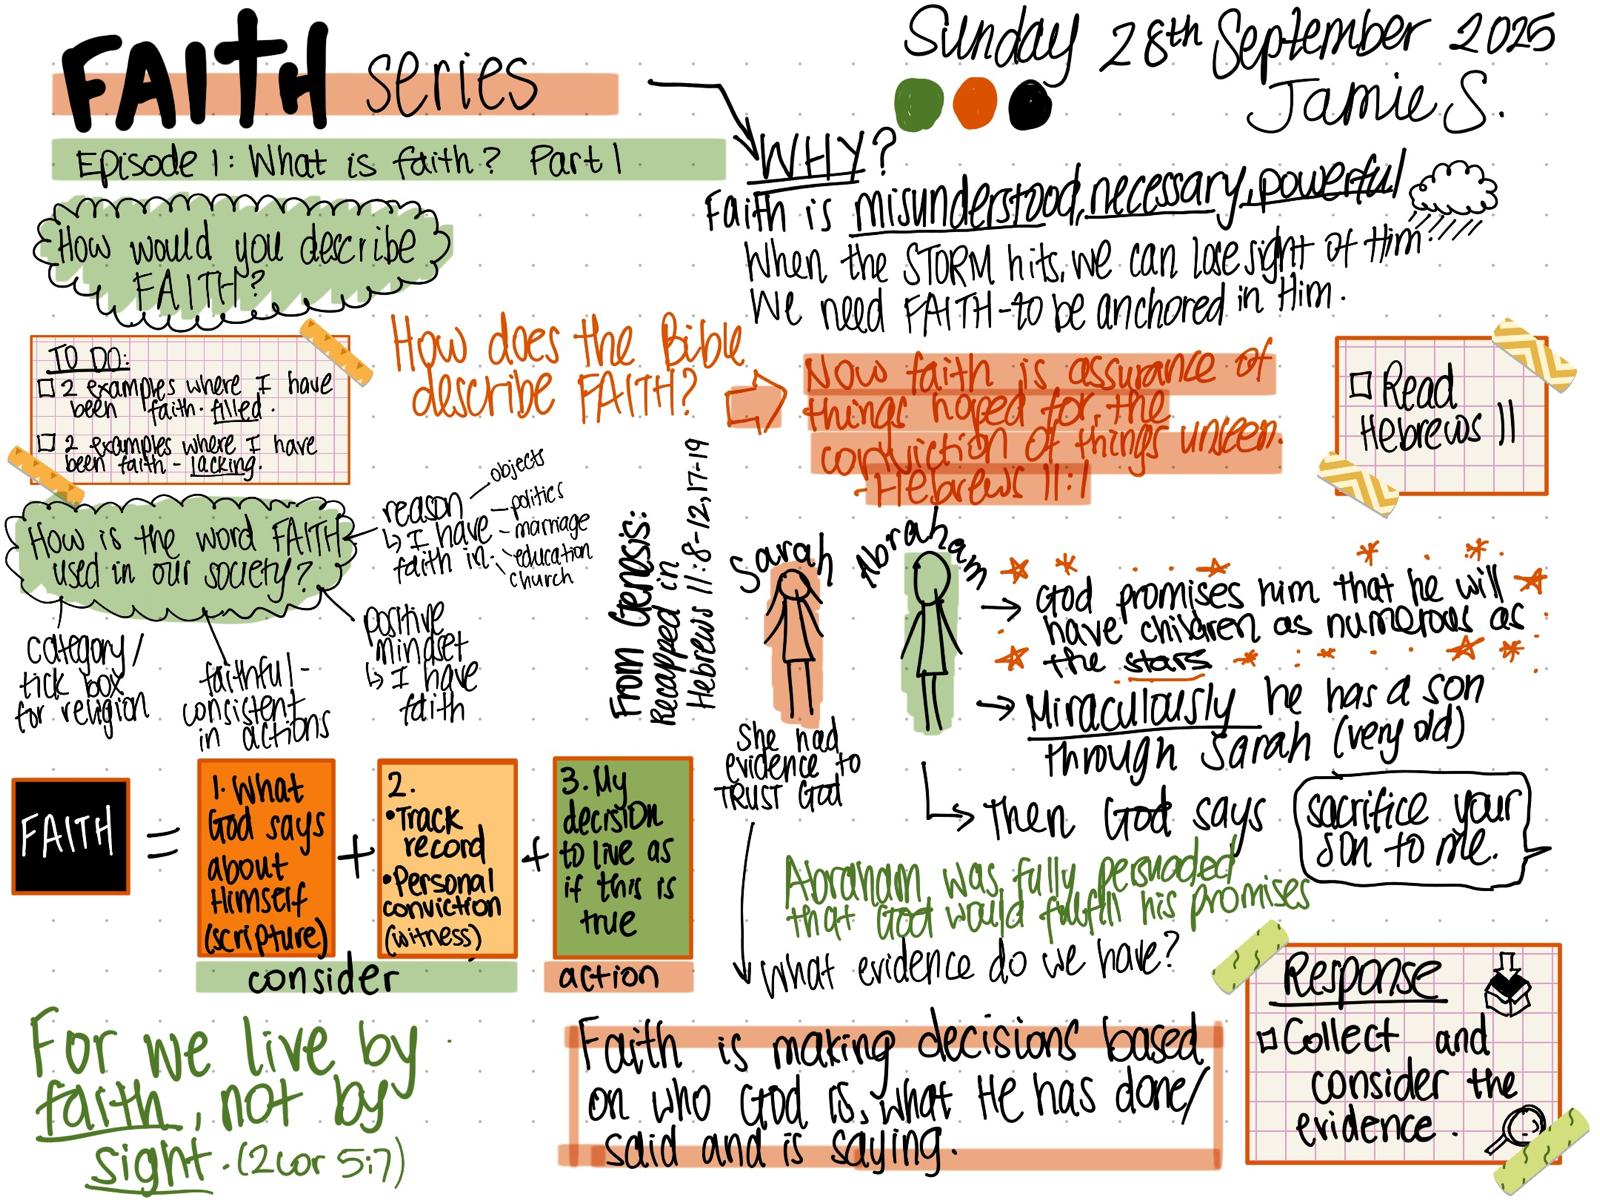 FAITH series
Episode 1: What is faith? Part 1
Sunday 28th September 2025
Jamie S.
WHY?
Faith is misunderstood, necessary, powerful
When the STORM hits, we can lose sight of Him.
We need FAITH - to be anchored in Him.
How would you describe
FAITH?
TO DO:
2 examples where I have
been faith-filled.
2 examples where I have
been faith-lacking.
How does the Bible
describe FAITH?
Now faith is assurance of
things hoped for, the
conviction of things unseen.
- Hebrews 11:1
Read
Hebrews 11
How is the word FAITH
used in our society?
reason
I have
faith in:
objects
politics
marriage
education
church
category/
tick box
for religion
faithful -
consistent
in actions
positive
mindset
I have
faith
From Genesis:
Recapped in
Hebrews 11:8-12,17-19
Sarah
She had
evidence to
TRUST God
Abraham
God promises him that he will
have children as numerous as
the stars
Miraculously he has a son
through Sarah (very old)
Then God says
sacrifice your
son to me.
Abraham was fully persuaded
that God would fulfill his promises
What evidence do we have?
FAITH
=
1. What
God says
about
Himself
(scripture)
+
2.
• Track
record
• Personal
conviction
(witness)
+
3. My
decision
to live as
if this is
true
consider
action
For we live by
faith, not by
sight. (2Cor 5:7)
Faith is making decisions based
on who God is, what He has done/
said and is saying.
Response
Collect and
consider the
evidence.